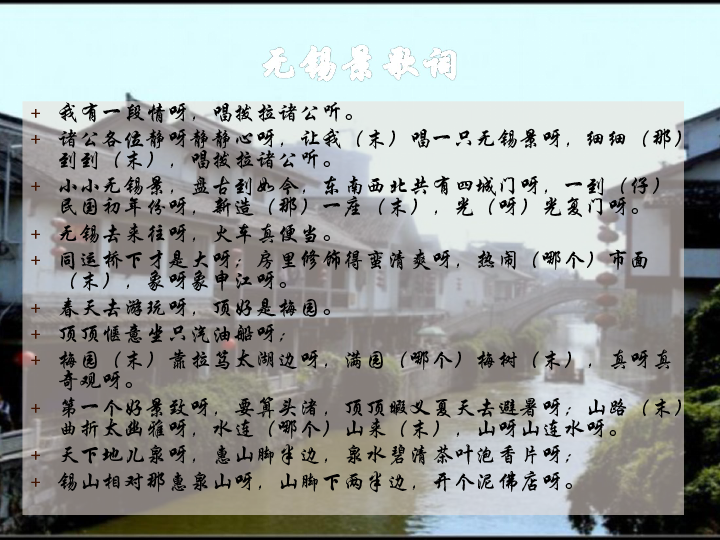 无锡景歌词
我有一段情呀，唱拨拉诸公听。
诸公各位静呀静静心呀，让我（末）唱一只无锡景呀，细细（那）
到到（末），唱拨拉诸公听。
小小无锡景，盘古到如今，东南西北共有四城门呀，一到（仔）
民国初年份呀，新造（那）一座（末），光（呀）光复门呀。
无锡去来往呀，火车真便当。
同运桥下才是大呀；房里修饰得蛮清爽呀，热闹（哪个）市面
（末），象呀象申江呀。
春天去游玩呀，顶好是梅园。
顶顶惬意坐只汽油船呀；
梅园（末）靠拉笃太湖边呀，满园（哪个）梅树（末），真呀真
奇观呀。
第一个好景致呀，要算头渚，顶顶暇义夏天去避暑呀；山路（末）
曲折太幽雅呀，水连（哪个）山来（末），山呀山连水呀。
天下地儿泉呀，惠山脚半边，泉水碧清茶叶泡香片呀；
锡山相对那惠泉山呀，山脚下两半边，开个泥佛店呀。